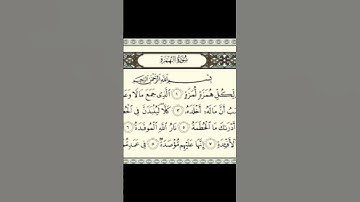 سُورَةُ الْهُمَزَةِ
بِسْمِ اللَّهِ الرَّحْمَٰنِ الرَّحِيمِ
لِّكُلِّ هُمَزَةٍ لُّمَزَةٍ ١ الَّذِي جَمَعَ مَالًا
أَنَّ مَالَهُ أَخْلَدَهُ ٣ كَلَّا لَيُنبَذَنَّ فِي
أَدْرَىٰكَ مَا الْحُطَمَةُ ٥ نَارُ اللَّهِ الْمُوقَدَةُ ٦
الْأَفْـِٔدَةِ ٧ إِنَّهَا عَلَيْهِم مُّؤْصَدَةٌ ٨ فِي عَمَدٍ